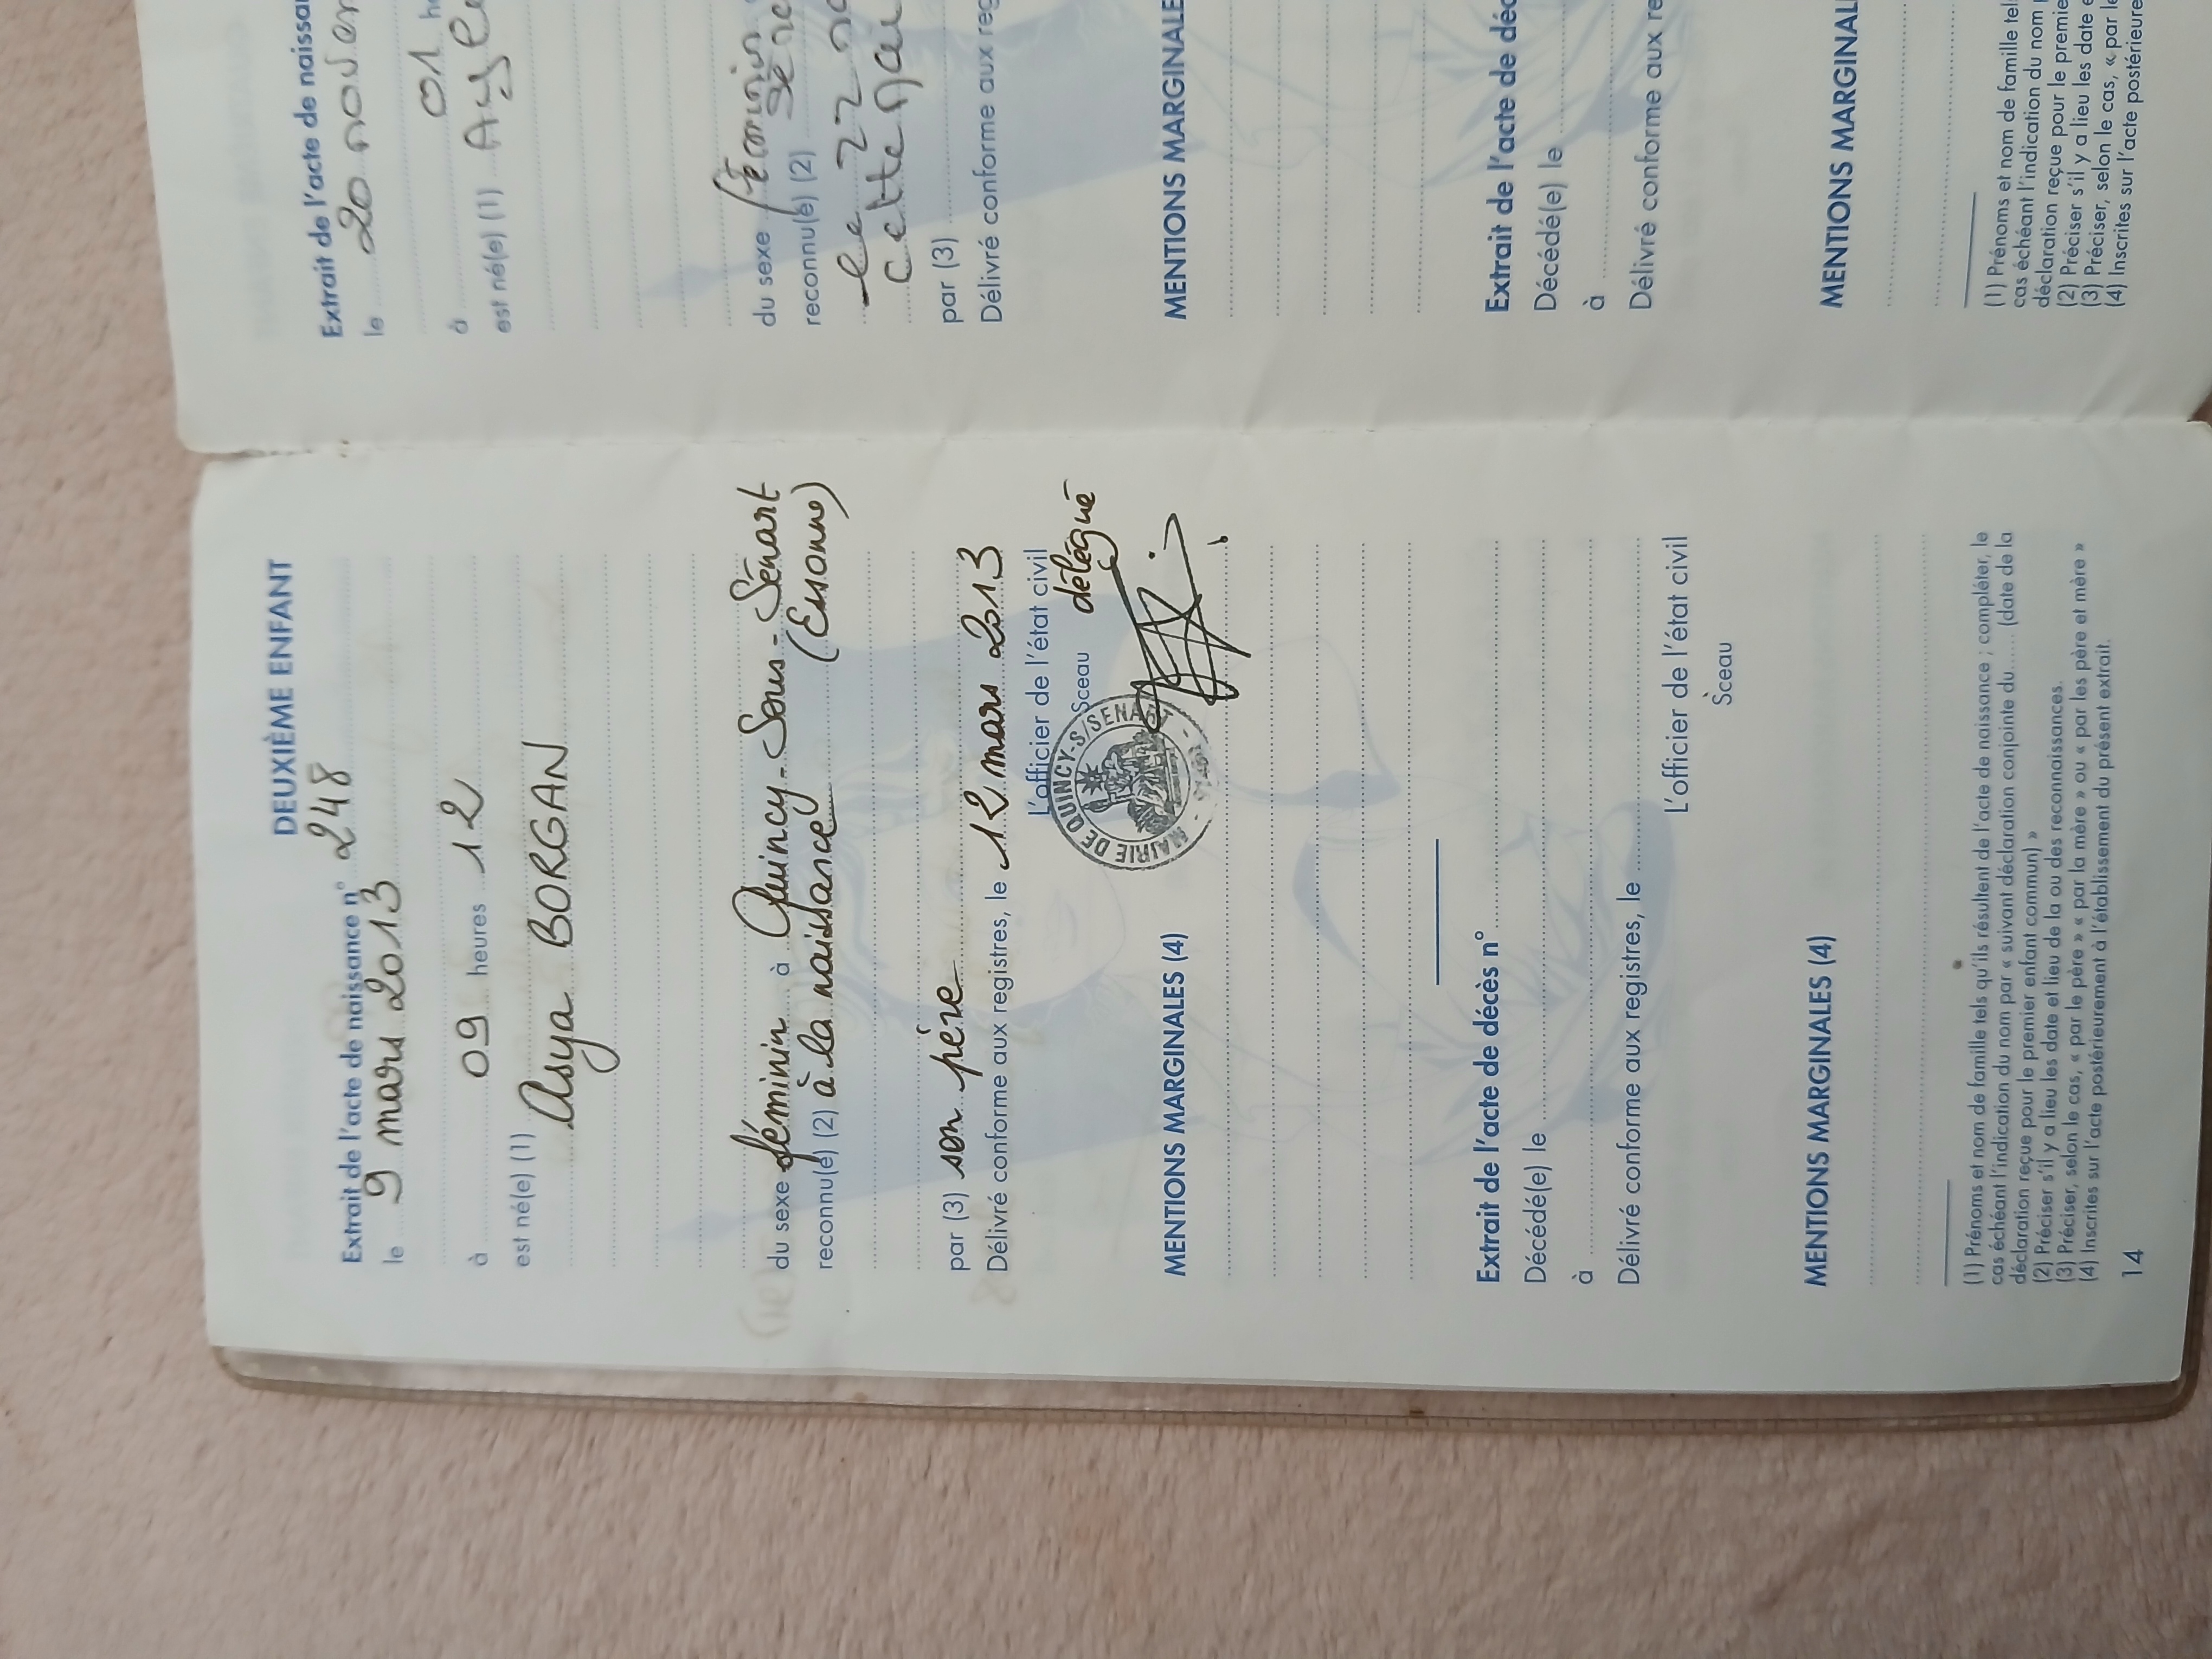 DEUXIÈME ENFANT
Extrait de l'acte de naissance n° 248
le 9 mars 2013
à 09 heures 12
est né(e) (1)
Asya BORGAN
du sexe féminin à Quincy-Sous-Sénart
reconnu(e) (2) à la naissance (Essonne)
par (3) son père
Délivré conforme aux registres, le 12 mars 2013
L'officier de l'état civil
Sceau délégué
MAIRIE DE QUINCY-S/SENART
MENTIONS MARGINALES (4)
Extrait de l'acte de décès n°
Décédé(e) le
à
Délivré conforme aux registres, le
L'officier de l'état civil
Sceau
MENTIONS MARGINALES (4)
(1) Prénoms et nom de famille tels qu'ils résultent de l'acte de naissance ; compléter, le
cas échéant l'indication du nom par « suivant déclaration conjointe du...... (date de la
déclaration reçue pour le premier enfant commun) »
(2) Préciser s'il y a lieu les date et lieu de la ou des reconnaissances.
(3) Préciser, selon le cas, « par le père » « par la mère » ou « par les père et mère »
(4) Inscrites sur l'acte postérieurement à l'établissement du présent extrait.
14
Extrait de l'acte de naissa
le 20
à 01
est né(e) (1)
du sexe féminin
reconnu(e) (2)
le 22
par (3)
Délivré conforme aux reg
MENTIONS MARGINALE
Extrait de l'acte de déc
Décédé(e) le
à
Délivré conforme aux re
MENTIONS MARGINAL
(1) Prénoms et nom de famille tel
cas échéant l'indication du nom
déclaration reçue pour le premie
(2) Préciser s'il y a lieu les date e
(3) Préciser, selon le cas, « par le
(4) Inscrites sur l'acte postérieure